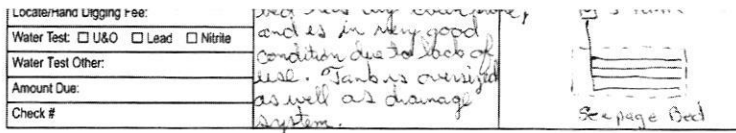 Locate/Hand Digging Fee:
Water Test: ☐ U&O ☐ Lead ☐ Nitrite
Water Test Other:
Amount Due:
Check #
and is in very good
condition due to lack of
use. Tank is oversized
as well as drainage
system.
Seepage Bed